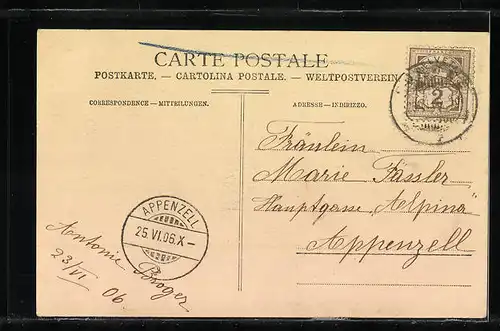 CARTE POSTALE
POSTKARTE. — CARTOLINA POSTALE. — WELTPOSTVEREIN
CORRESPONDENCE — MITTEILUNGEN.
ADRESSE — INDIRIZZO.
2
Fräulein
Marie Fässler
Hauptgasse „Alpina"
Appenzell
APPENZELL
25.VI.06.X–
Antonie Broger
23/VI 06.